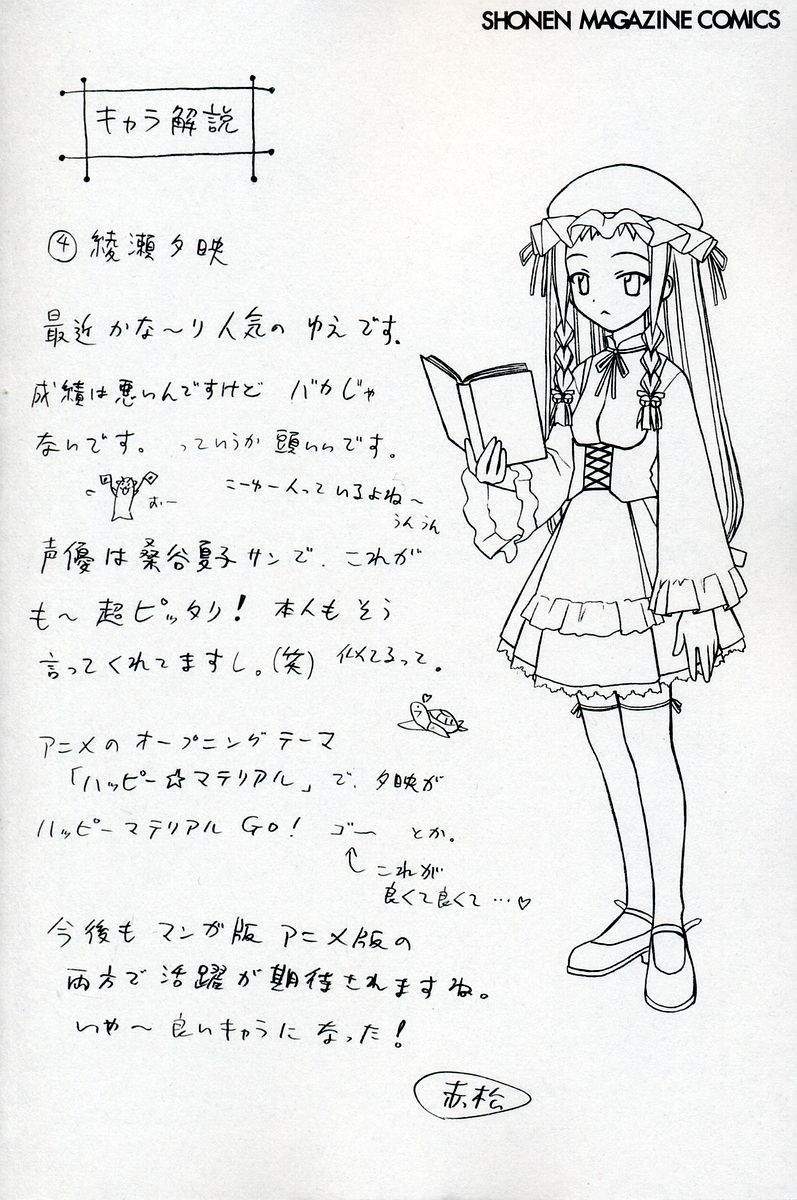 SHONEN MAGAZINE COMICS
キャラ解説
④ 綾瀬夕映
最近 かな〜り 人気の ゆえ です。
成績は悪いんですけど バカじゃ
ないです。 っていうか 頭いいです。
おー
こーゆー人っているよね〜
うんうん
声優は 桑谷夏子サンで、これが
も〜 超ピッタリ! 本人も そう
言ってくれてますし。(笑) 似てるって。
アニメの オープニングテーマ
「ハッピー☆マテリアル」で、夕映が
ハッピーマテリアル GO! ゴー とか。
↑これが
良くて良くて…♡
今後も マンガ版 アニメ版の
両方で 活躍が 期待されますね。
いや〜 良いキャラに なった!
赤松